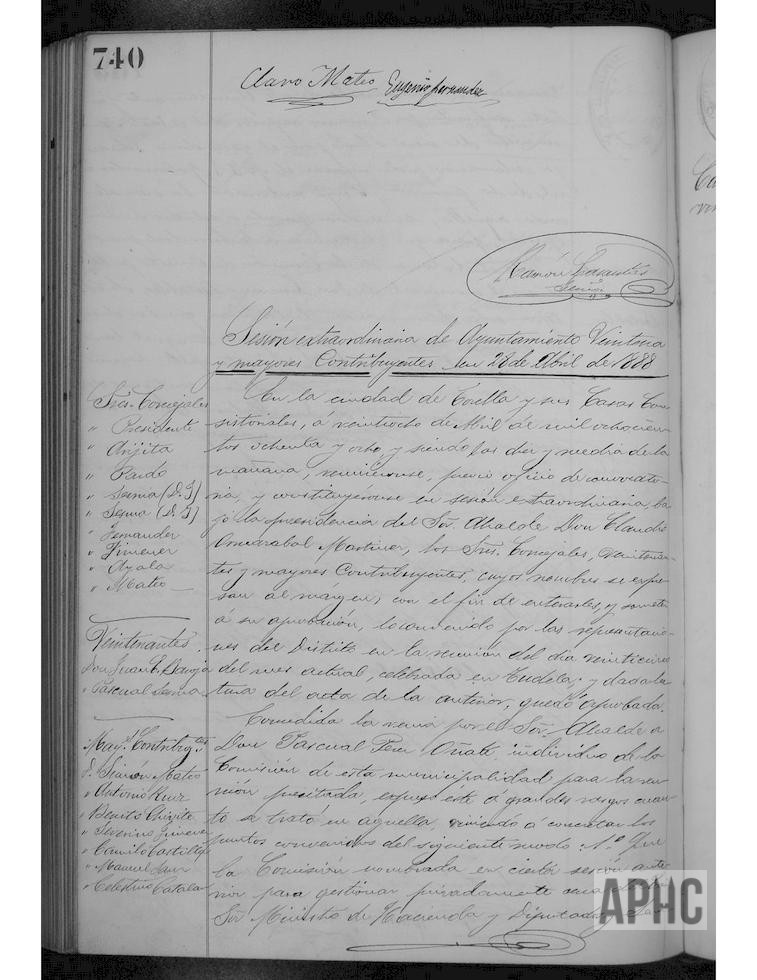 740
Claro Mateo Eugenio Fernandez
Ramón
Sesión extraordinaria de Ayuntamiento Veintena
y mayores Contribuyentes en 28 de Abril de 1888
Sres. Concejales
" Presidente
" Arijita
" Pardo
" Sesma (D. J)
" Sesma (D. F)
" Fernandez
" Jimenez
" Ayala
" Mateo
Veintenantes
Don Juan
" Pascual Sesma
May.s Contribuy.tes
D. Simón Mateo
" Antonio Ruiz
" Benito Chivite
" Severino Jimenez
" Camilo Castillejo
" Manuel Sanz
" Celestino Catalan
En la ciudad de Corella y sus Casas Con-
sistoriales, á veintiocho de Abril de mil ochocien-
tos ochenta y ocho, y siendo las diez y media de la
mañana, reuniéronse, previo oficio de convocato-
ria, y constituyéronse en sesión extraordinaria, ba-
jo la presidencia del Sor. Alcalde Don Claudio
Martinez, los Sres. Concejales, Veintenan-
tes y mayores Contribuyentes, cuyos nombres se expre-
san al margen, con el fin de enterarles, y someter
á su aprobación, lo convenido por las representacio-
nes del Distrito en la reunión del dia veinticinco
del mes actual, celebrada en Tudela; y dada lec-
tura del acta de la anterior, quedó aprobada.
Concedida la venia por el Sor. Alcalde a
Don Pascual Perez Oñate, individuo de la
Comisión de esta municipalidad para la reu-
nión precitada, expuso éste á grandes rasgos cuan-
to se trató en aquella, viniendo á concretar los
puntos convenidos del siguiente modo: 1.º Que
la Comisión nombrada en cierta sesión ante-
rior para gestionar privadamente
Sor. Ministro de Hacienda y Diputado
APHC